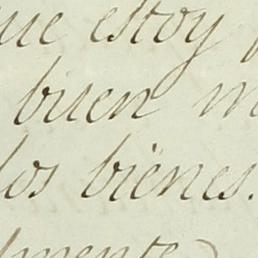 que estoy
buen
los bienes.
lmente